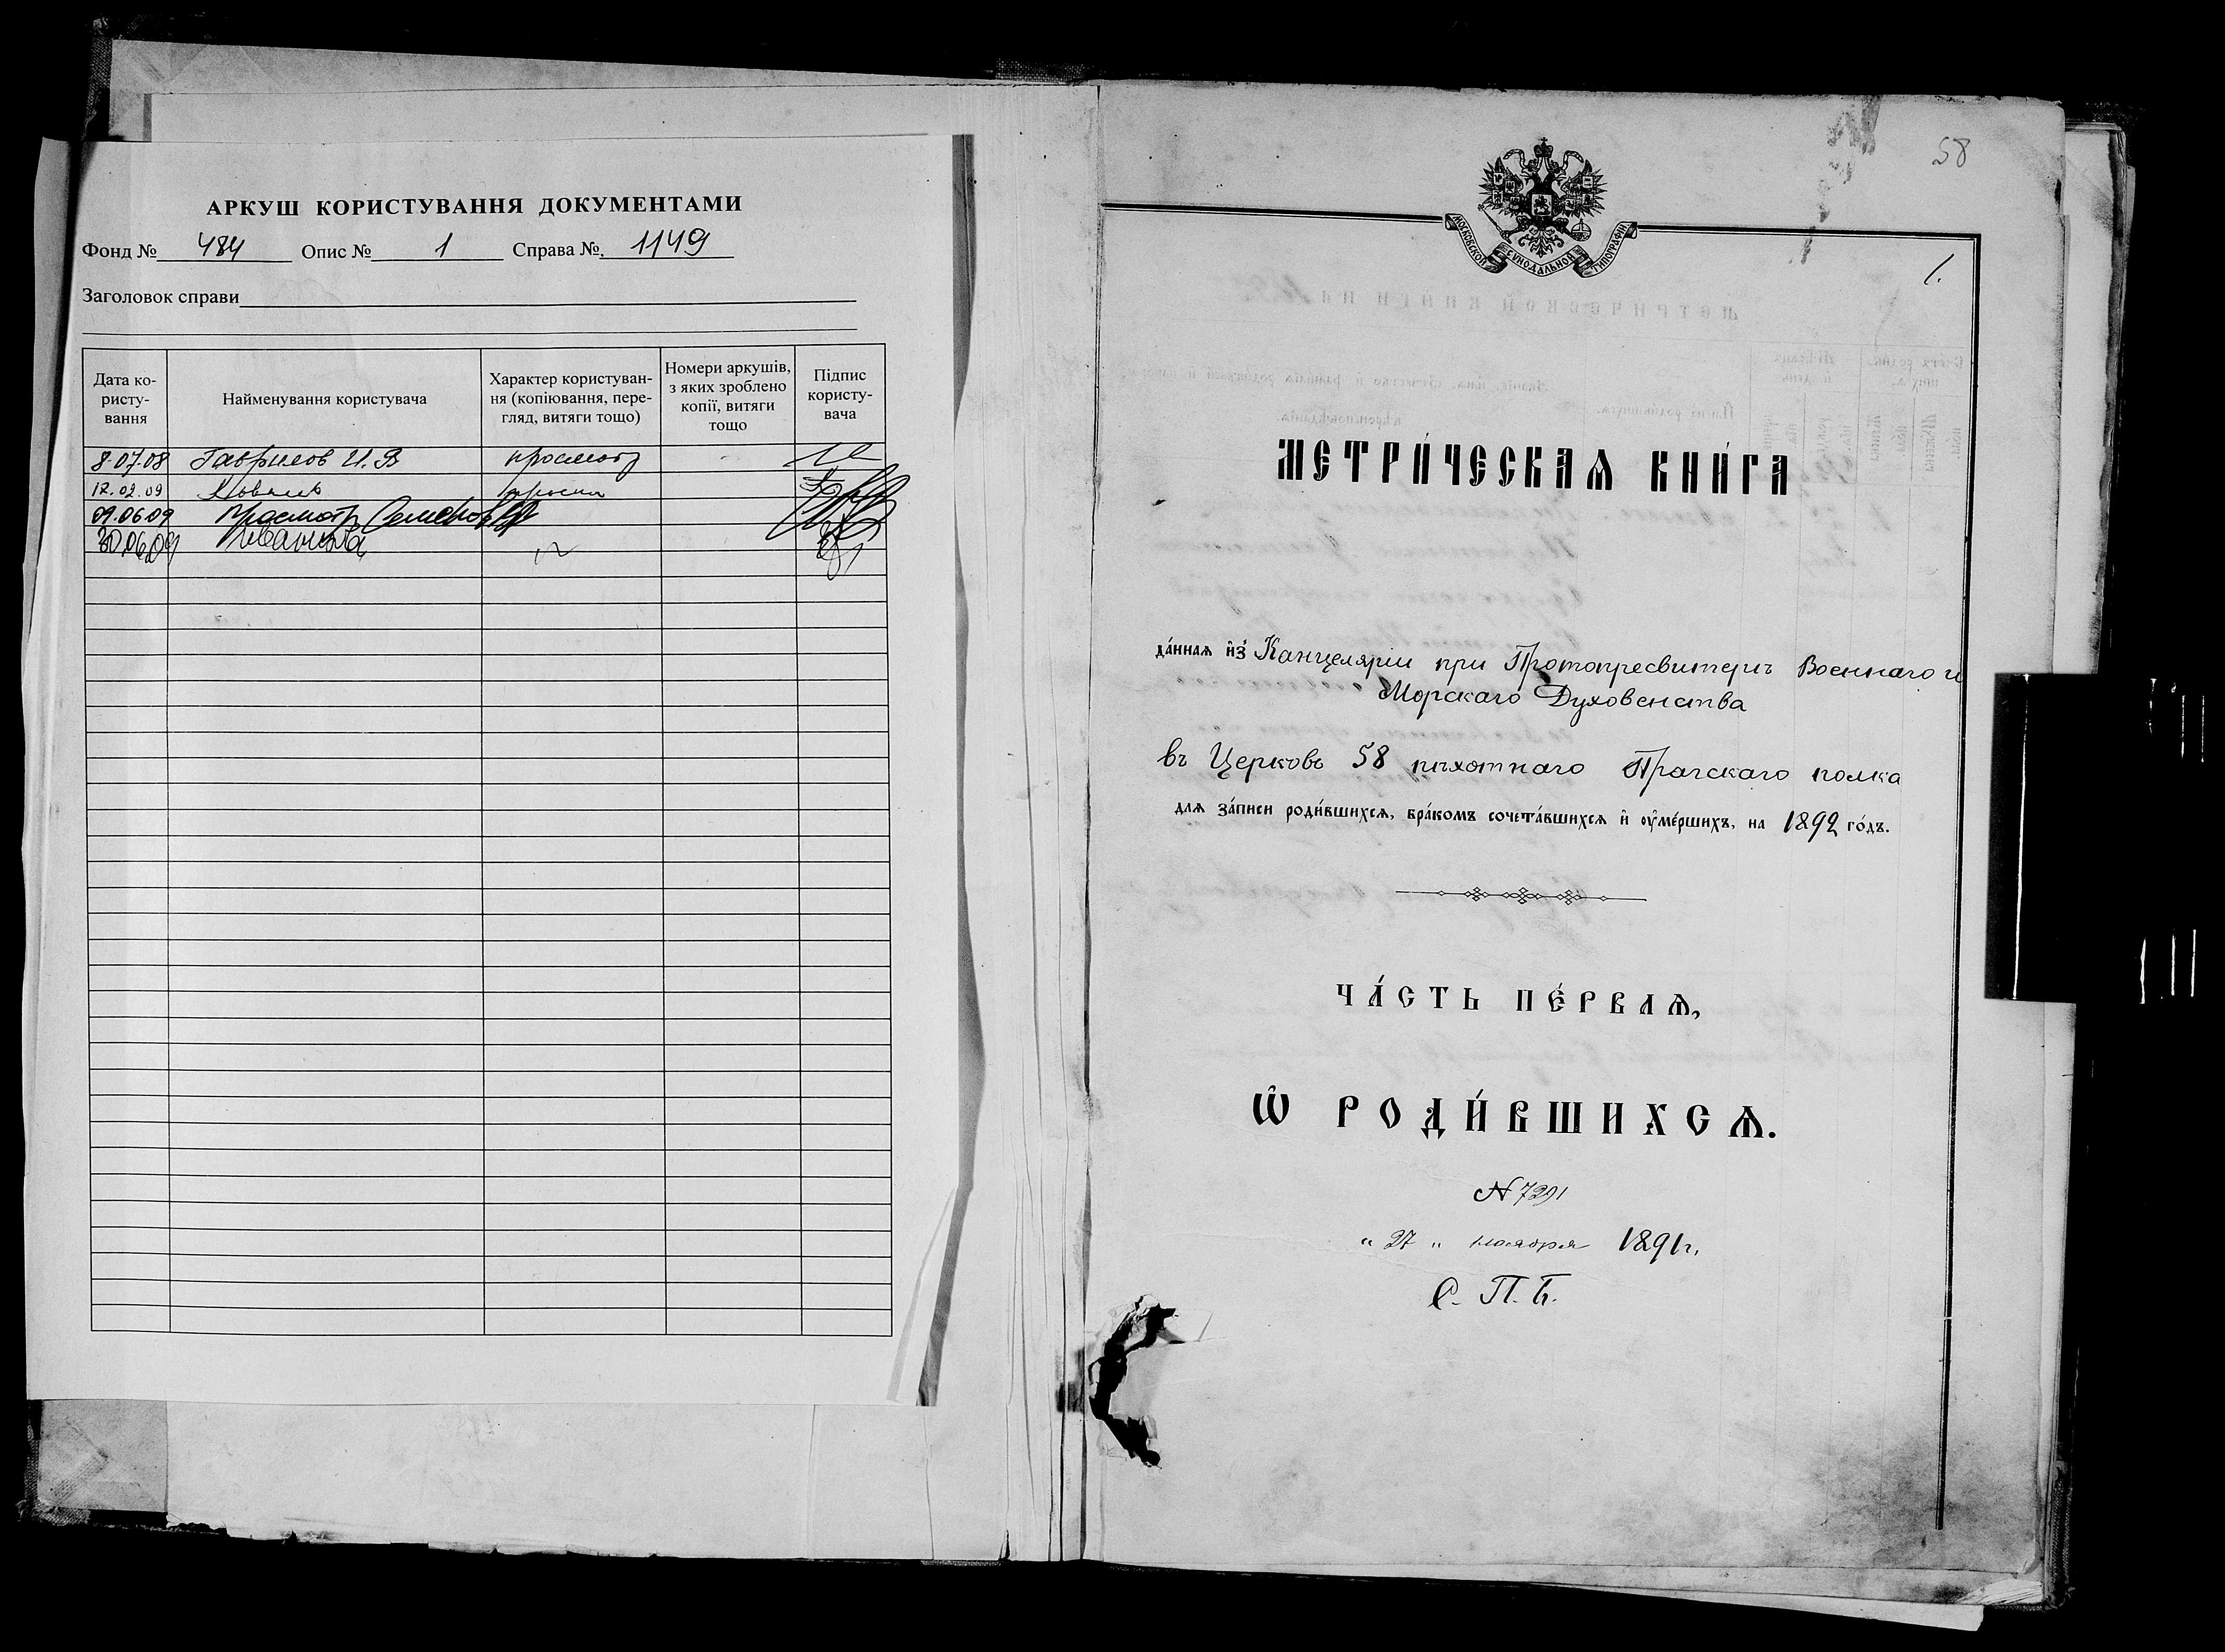 АРКУШ КОРИСТУВАННЯ ДОКУМЕНТАМИ
Фонд № 484 Опис № 1 Справа №, 1149
Заголовок справи
Дата ко-
ристу-
вання
Найменування користувача
Характер користуван-
ня (копіювання, пере-
гляд, витяги тощо)
Номери аркушів,
з яких зроблено
копії, витяги
тощо
Підпис
користу-
вача
8.07.08 Гаврилов И.В просмотр
12.02.09
09.06.09 просмотр
30.06.09
58
МОСКОВСКОЙ СѴНОДАЛЬНОЙ ТИПОГРАФІИ
1.
МЕТРИ́ЧЕСКАѦ КНИ́ГА
да́ннаѧ и҆зъ Канцеляріи при Протопресвитерѣ Военнаго и
Морскаго Духовенства
въ Церковь 58 пѣхотнаго Прагскаго полка
длѧ за́писи роди́вшихсѧ, бра́комъ сочета́вшихсѧ и҆ ᲂу҆ме́ршихъ, на 1892 го́дъ.
ЧА́СТЬ ПЕ́РВАѦ,
Ѽ РОДИ́ВШИХСѦ.
№ 7291
" 27 " ноября 1891 г.
С. П. Б.